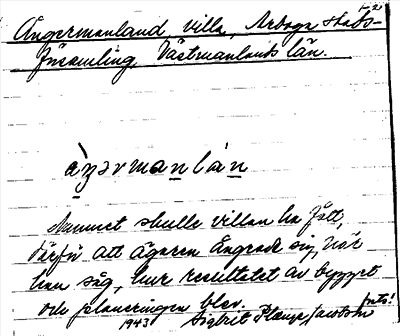 1-2
Ångermanland, villa, Arboga stads-
församling, Västmanlands län.
àŋərmanlán
Namnet skulle villan ha fått,
därför att ägaren ångrade sig, när
han såg, hur resultatet av bygget
och planeringen blev.
1943! Sigbrit Plænge Jacobson